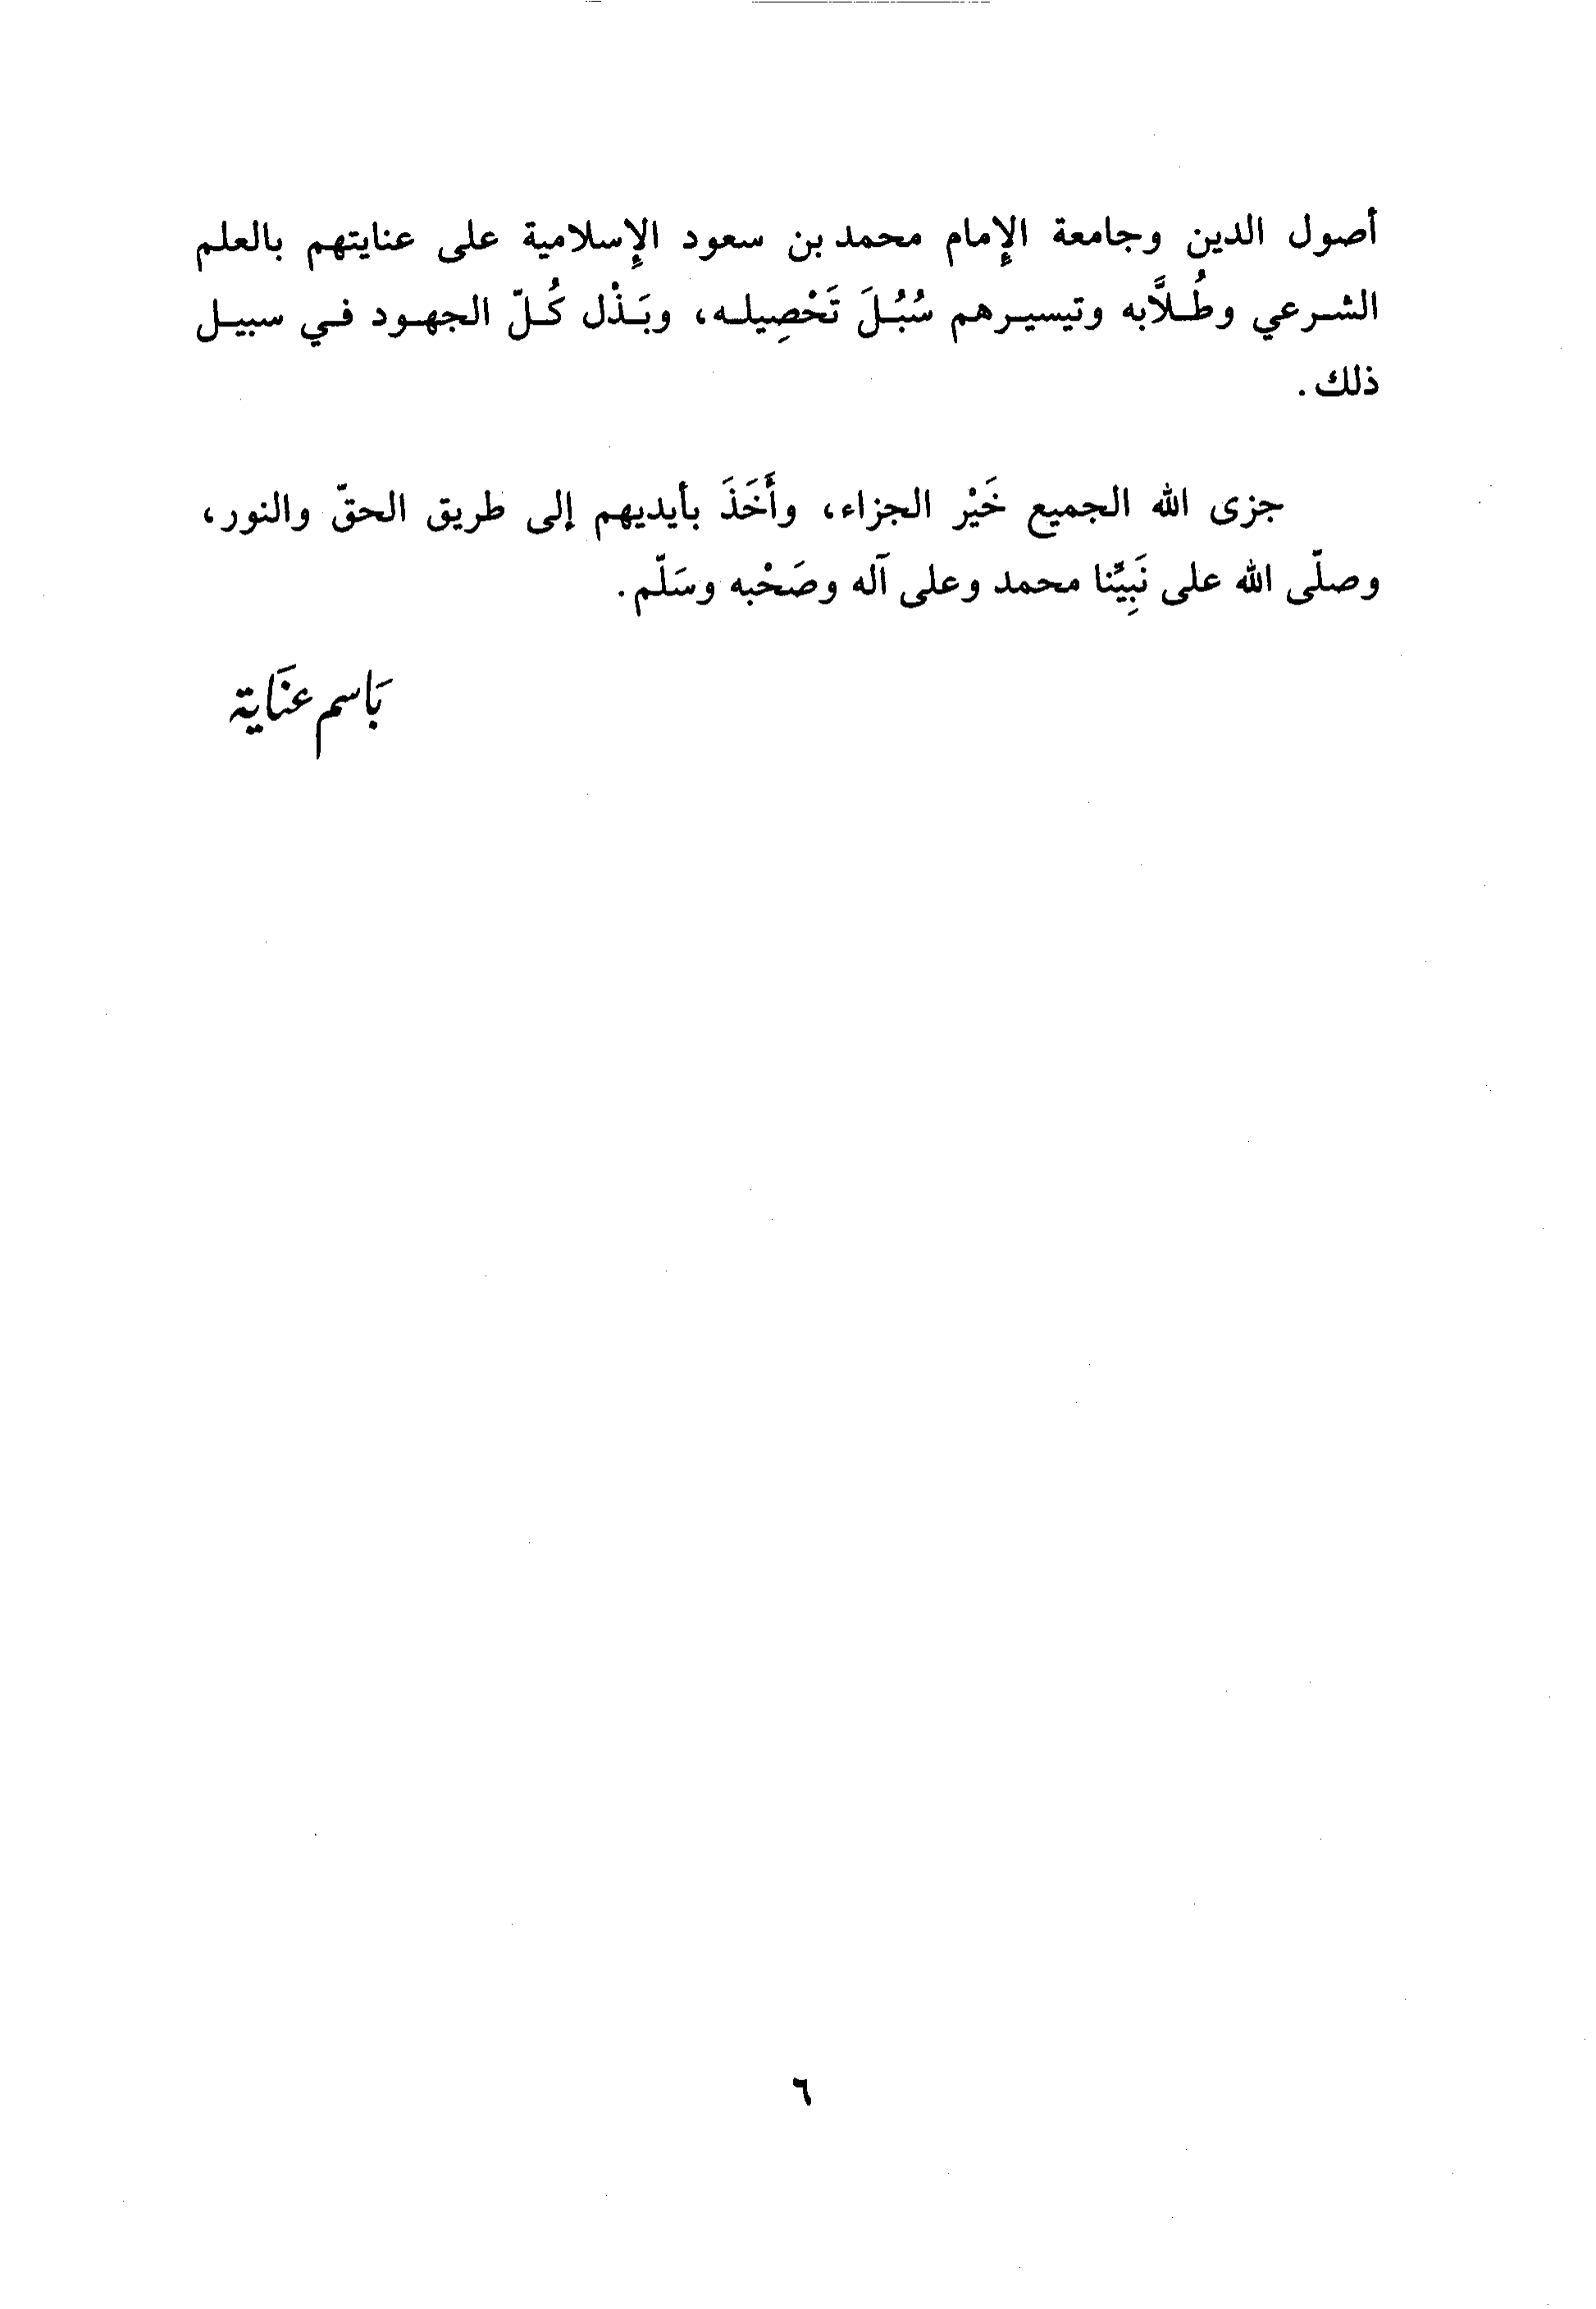 أصول الدين وجامعة الإِمام محمد بن سعود الإِسلامية على عنايتهم بالعلم
الشرعي وطُلَّابه وتيسيرهم سُبُلَ تَحْصِيله، وبَذْل كُلّ الجهود في سبيل
ذلك.
جزى الله الجميع خَيْر الجزاء، وأَخَذَ بأيديهم إلى طريق الحقّ والنور،
وصلّى الله على نَبِيِّنا محمد وعلى آله وصَحْبه وسَلّم.
بَاسم عنَاية
٦